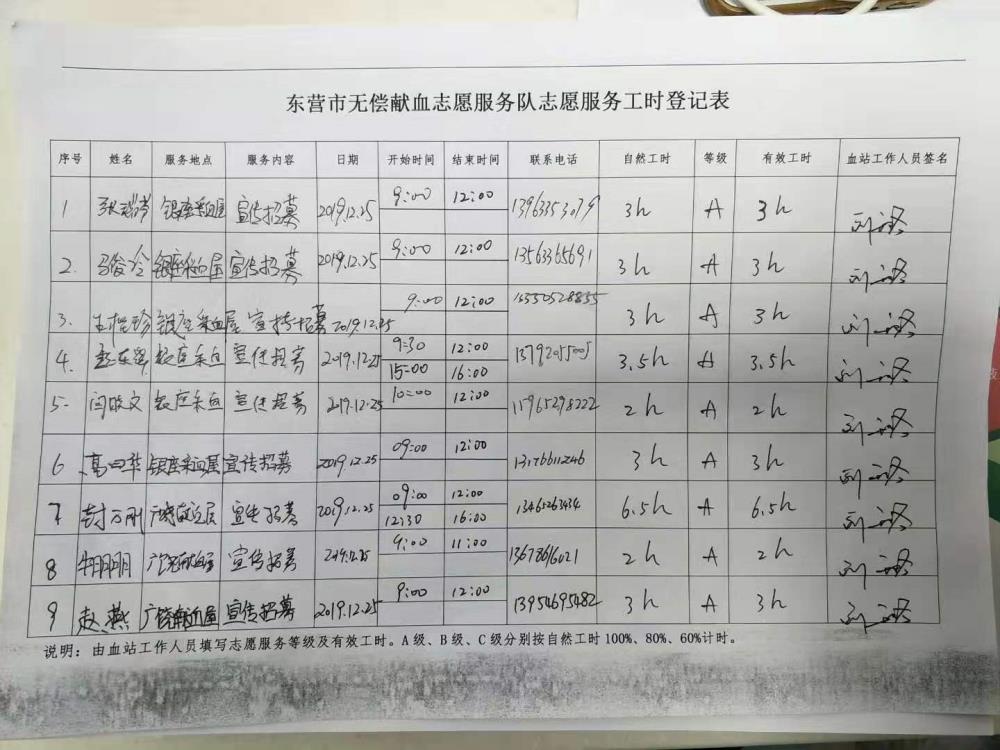 东营市无偿献血志愿服务队志愿服务工时登记表
序号 姓名 服务地点 服务内容 日期 开始时间 结束时间 联系电话 自然工时 等级 有效工时 血站工作人员签名
1 银座采血屋 宣传招募 2019.12.25 9:00 12:00 13963353079 3h A 3h
2. 银座采血屋 宣传招募 2019.12.25 9:00 12:00 13563365691 3h A 3h
3. 王桂珍 银座采血屋 宣传招募 2019.12.25 9:00 12:00 3h A 3h
4. 银座采血 宣传招募 2019.12.25 9:30 12:00 13792055005 3.5h A 3.5h
15:00 16:00
5. 闫晓文 银座采血 宣传招募 2019.12.25 10:00 12:00 15965298222 2h A 2h
6 高四华 银座采血屋 宣传招募 2019.12.25 09:00 12:00 13176611246 3h A 3h
7 封万刚 宣传招募 2019.12.25 09:00 12:00 13465263434 6.5h A 6.5h
12:30 16:00
8 牛明明 宣传招募 2019.12.25 9:00 11:00 13678616021 2h A 2h
9 赵燕 广饶献血屋 宣传招募 2019.12.25 9:00 12:00 13954695482 3h A 3h
说明：由血站工作人员填写志愿服务等级及有效工时。A级、B级、C级分别按自然工时100%、80%、60%计时。